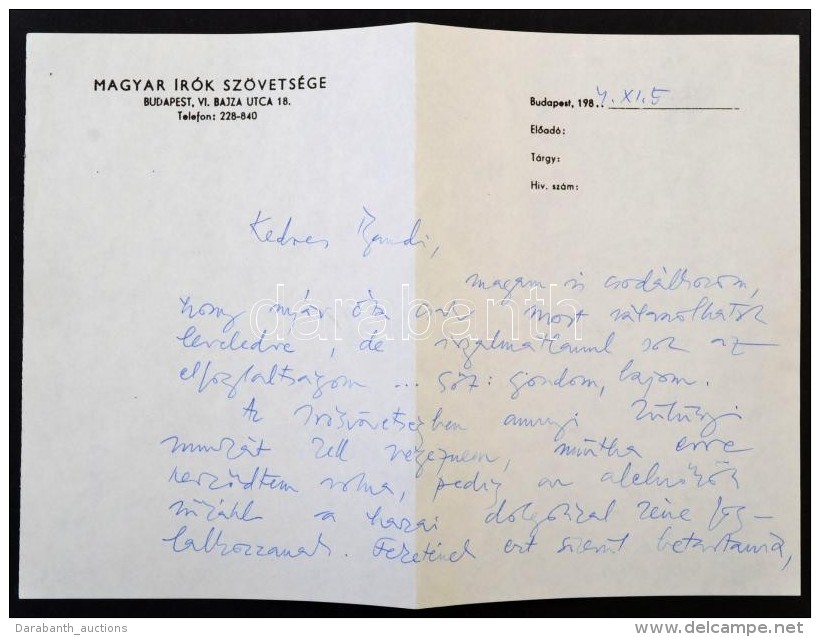 MAGYAR IRÓK SZÖVETSÉGE
BUDAPEST, VI. BAJZA UTCA 18.
Telefon: 228-840
Budapest, 198.. 4. XI. 5
Előadó:
Tárgy:
Hiv. szám:
Kedves Bandi,
magam is csodálkozom,
hogy nyár óta csak most válaszolhatok
leveledre, de irgalmatlanul sok az
elfoglaltságom ... sőt: gondom, bajom.
Az Írószövetségben annyi külügyi
munkát kell végeznem, mintha erre
szerződtem volna, pedig az alelnökök
inkább a hazai dolgokkal kéne fog-
lalkozzanak. ezt szerint betartanod,
darabanth
Darabanth_auctions
delcampe.net